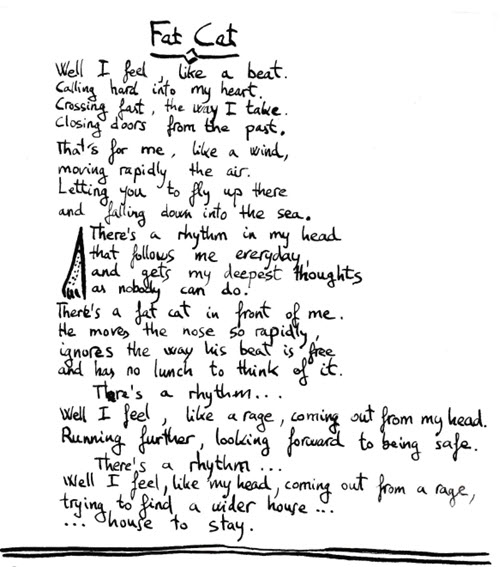 Fat Cat
Well I feel, like a beat.
Calling hard into my heart.
Crossing fast, the way I take.
Closing doors from the past.
That's for me, like a wind,
moving rapidly the air.
Letting you to fly up there
and falling down into the sea.
There's a rhythm in my head
that follows me everyday,
and gets my deepest thoughts
as nobody can do.
There's a fat cat in front of me.
He moves the nose so rapidly,
ignores the way his beat is free
and has no lunch to think of it.
There's a rhythm...
Well I feel, like a rage, coming out from my head.
Running further, looking forward to being safe.
There's a rhythm...
Well I feel, like my head, coming out from a rage,
trying to find a wider house...
... house to stay.